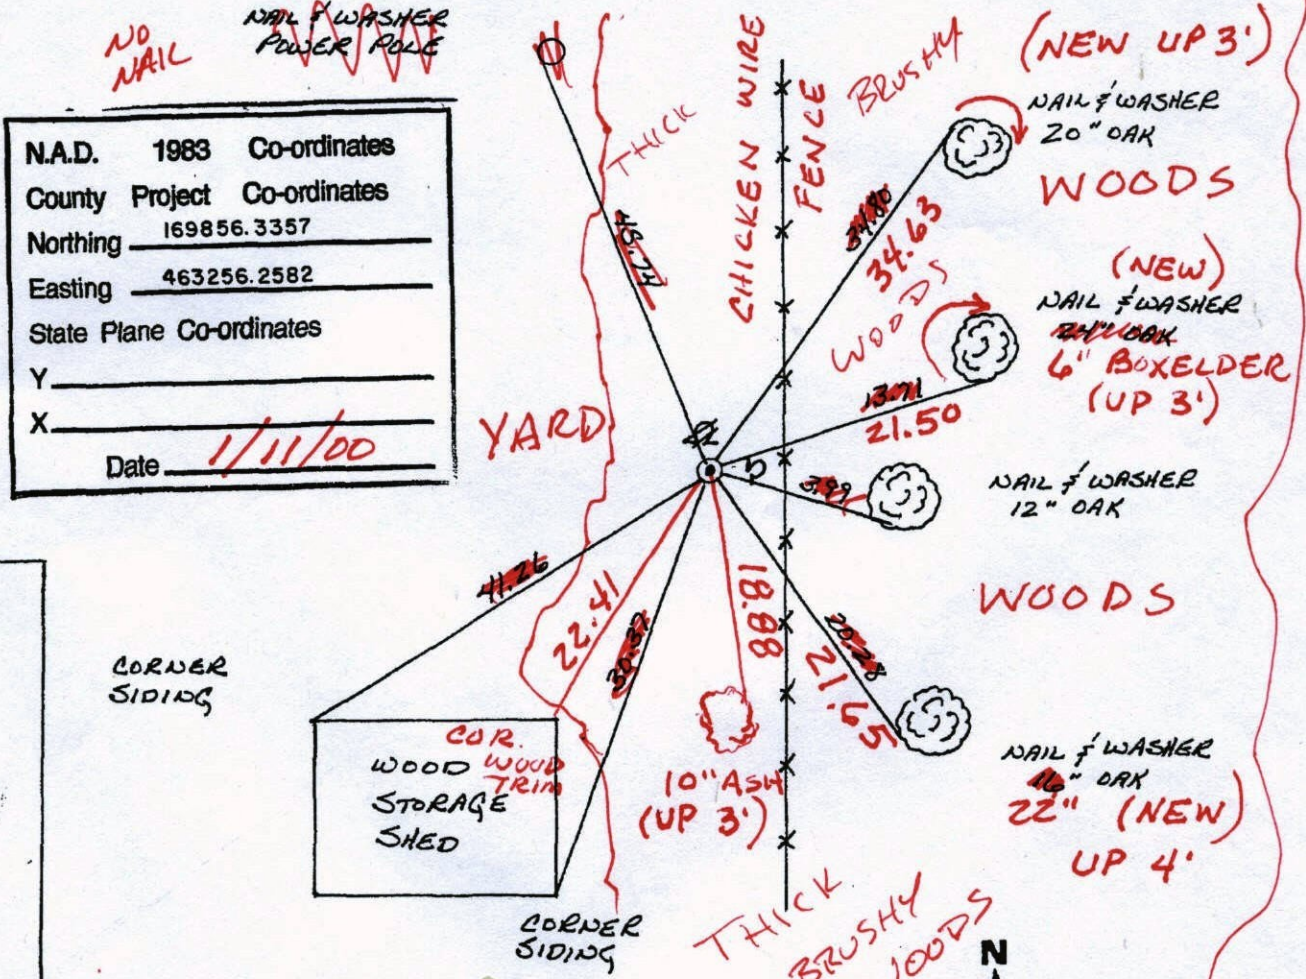 NO
NAIL
NAIL & WASHER
POWER POLE
N.A.D. 1983 Co-ordinates
County Project Co-ordinates
Northing 169856.3357
Easting 463256.2582
State Plane Co-ordinates
Y
X
Date 1/11/00
THICK
CHICKEN WIRE
FENCE
BRUSHY
(NEW UP 3')
NAIL & WASHER
20" OAK
WOODS
48.74
34.80
34.63
WOODS
(NEW)
NAIL & WASHER
24" OAK
6" BOXELDER
(UP 3')
13.71
21.50
YARD
3.99
NAIL & WASHER
12" OAK
41.26
22.41
30.37
18.88
20.28
21.65
WOODS
CORNER
SIDING
COR.
WOOD
TRIM
WOOD
STORAGE
SHED
10" ASH
(UP 3')
NAIL & WASHER
16" OAK
22" (NEW)
UP 4'
CORNER
SIDING
THICK
BRUSHY
WOODS
N